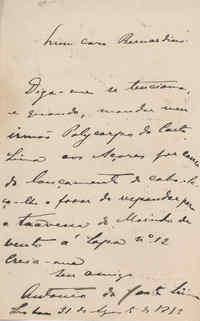 Meu caro Bernardino
Diga-me se tenciona,
e quando, mandar meu
irmão Polycarpo da Costa
Lima aos Açores por causa
do lançamento de cabo. Pe-
ço-lhe o favor de responder para
a travessa do Moinho de
Vento á Lapa nº 12
Creia-me
seu amigo
Antonio da Costa Lima
Lisboa 21 de 1912